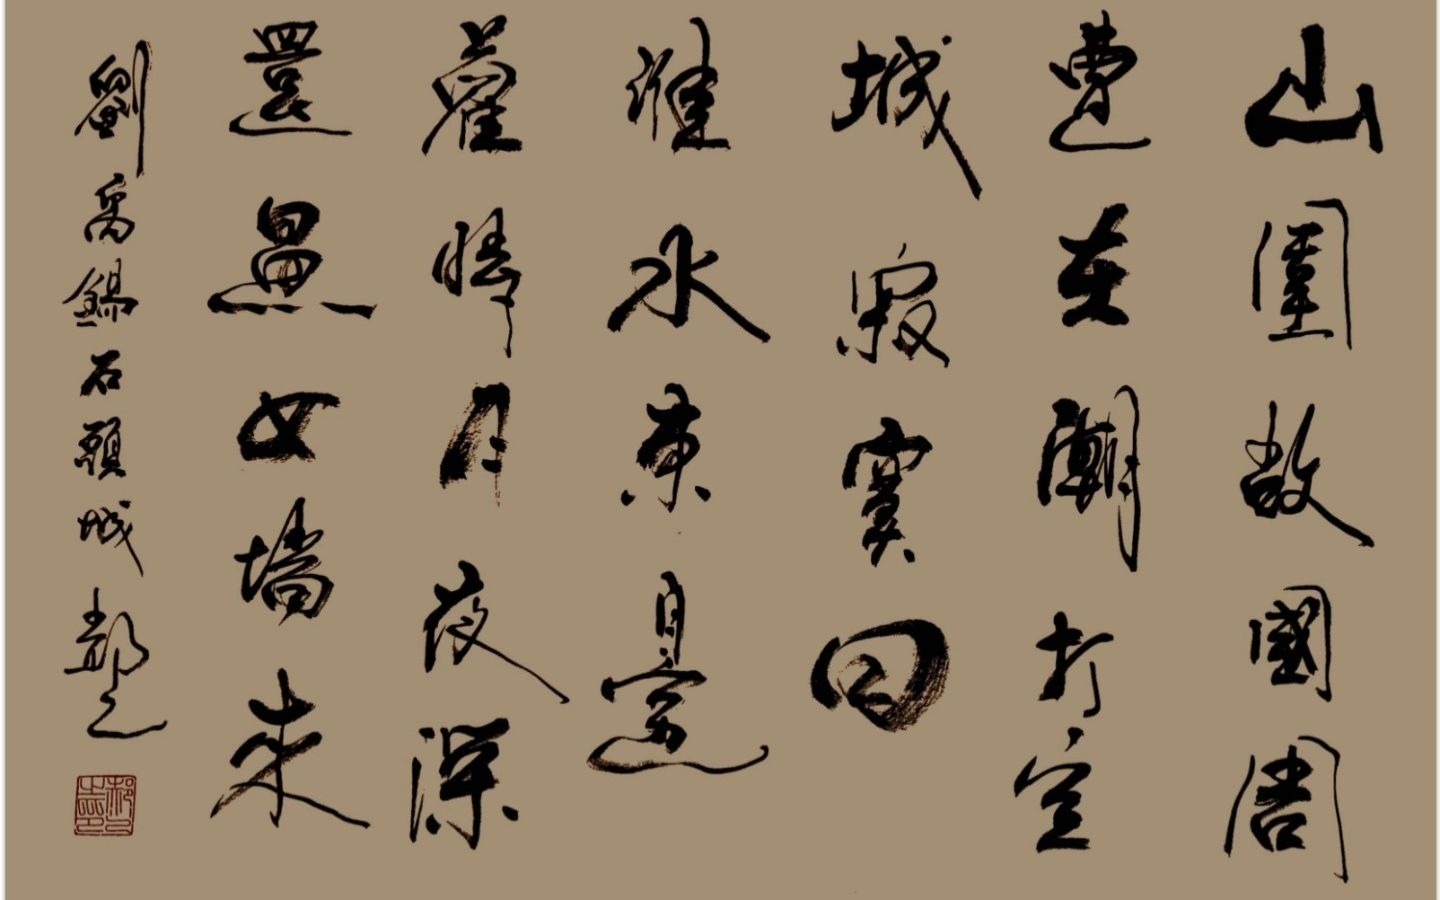 山圍故國周
遭在潮打空
城寂寞回
淮水東邊
舊時月夜深
還過女墻來
劉禹錫石頭城